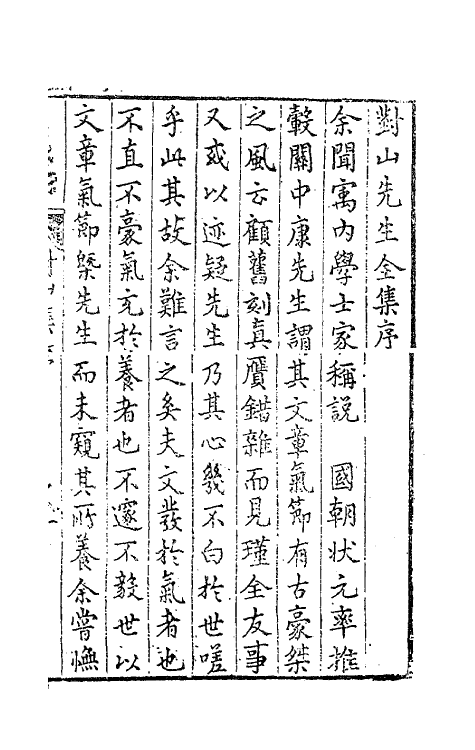 對山先生全集序
余聞寓內學士家稱說　國朝狀元率推
轂關中康先生謂其文章氣節有古豪桀
之風云顧舊刻真贋錯雜而見瑾全友事
又或以迹疑先生乃其心幾不白於世嗟
乎此其故余難言之矣夫文發於氣者也
不直不豪氣充於養者也不邃不毅世以
文章氣節槩先生而未窺其所養余嘗憮